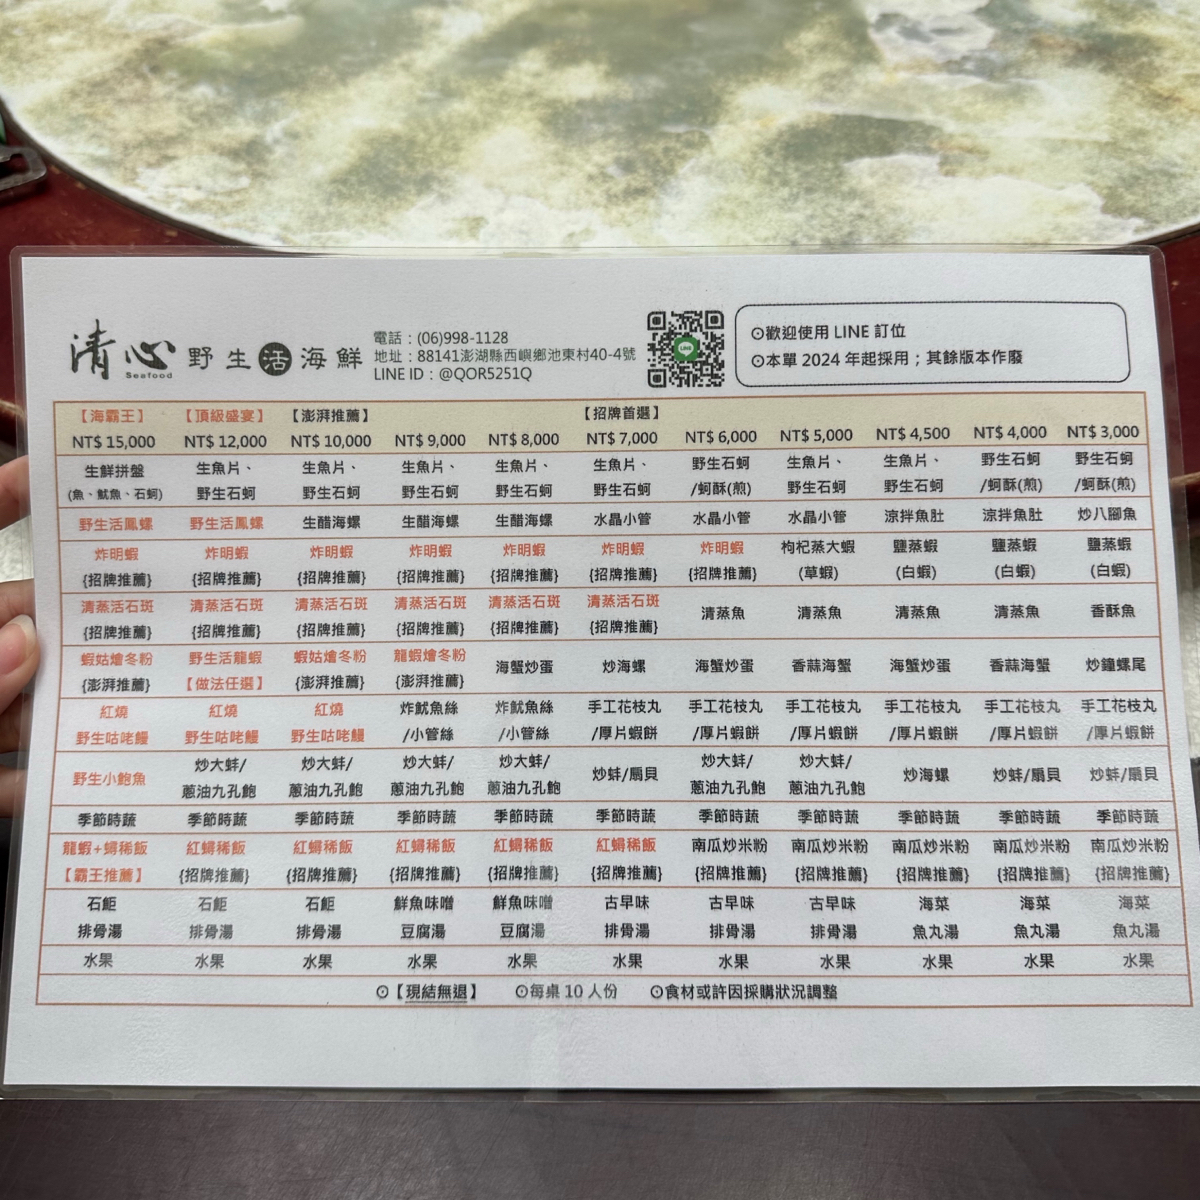 清心 野生活海鮮
Seafood
電話：(06)998-1128
地址：88141澎湖縣西嶼鄉池東村40-4號
LINE ID：@QOR5251Q
LINE
⊙歡迎使用 LINE 訂位
⊙本單 2024 年起採用；其餘版本作廢
【海霸王】 【頂級盛宴】 【澎湃推薦】 【招牌首選】
NT$ 15,000 NT$ 12,000 NT$ 10,000 NT$ 9,000 NT$ 8,000 NT$ 7,000 NT$ 6,000 NT$ 5,000 NT$ 4,500 NT$ 4,000 NT$ 3,000
生鮮拼盤 生魚片、 生魚片、 生魚片、 生魚片、 生魚片、 野生石蚵 生魚片、 生魚片、 野生石蚵 野生石蚵
(魚、魷魚、石蚵) 野生石蚵 野生石蚵 野生石蚵 野生石蚵 野生石蚵 /蚵酥(煎) 野生石蚵 野生石蚵 /蚵酥(煎) /蚵酥(煎)
野生活鳳螺 野生活鳳螺 生醋海螺 生醋海螺 生醋海螺 水晶小管 水晶小管 水晶小管 涼拌魚肚 涼拌魚肚 炒八腳魚
炸明蝦 炸明蝦 炸明蝦 炸明蝦 炸明蝦 炸明蝦 炸明蝦 枸杞蒸大蝦 鹽蒸蝦 鹽蒸蝦 鹽蒸蝦
{招牌推薦} {招牌推薦} {招牌推薦} {招牌推薦} {招牌推薦} {招牌推薦} {招牌推薦} (草蝦) (白蝦) (白蝦) (白蝦)
清蒸活石斑 清蒸活石斑 清蒸活石斑 清蒸活石斑 清蒸活石斑 清蒸活石斑 清蒸魚 清蒸魚 清蒸魚 清蒸魚 香酥魚
{招牌推薦} {招牌推薦} {招牌推薦} {招牌推薦} {招牌推薦} {招牌推薦}
蝦姑燴冬粉 野生活龍蝦 蝦姑燴冬粉 龍蝦燴冬粉 海蟹炒蛋 炒海螺 海蟹炒蛋 香蒜海蟹 海蟹炒蛋 香蒜海蟹 炒鐘螺尾
{澎湃推薦} 【做法任選】 {澎湃推薦} {澎湃推薦}
紅燒 紅燒 紅燒 炸魷魚絲 炸魷魚絲 手工花枝丸 手工花枝丸 手工花枝丸 手工花枝丸 手工花枝丸 手工花枝丸
野生咕咾鰻 野生咕咾鰻 野生咕咾鰻 /小管絲 /小管絲 /厚片蝦餅 /厚片蝦餅 /厚片蝦餅 /厚片蝦餅 /厚片蝦餅 /厚片蝦餅
野生小鮑魚 炒大蚌/ 炒大蚌/ 炒大蚌/ 炒大蚌/ 炒蚌/扇貝 炒大蚌/ 炒大蚌/ 炒海螺 炒蚌/扇貝 炒蚌/扇貝
蔥油九孔鮑 蔥油九孔鮑 蔥油九孔鮑 蔥油九孔鮑 蔥油九孔鮑 蔥油九孔鮑
季節時蔬 季節時蔬 季節時蔬 季節時蔬 季節時蔬 季節時蔬 季節時蔬 季節時蔬 季節時蔬 季節時蔬 季節時蔬
龍蝦+蟳稀飯 紅蟳稀飯 紅蟳稀飯 紅蟳稀飯 紅蟳稀飯 紅蟳稀飯 南瓜炒米粉 南瓜炒米粉 南瓜炒米粉 南瓜炒米粉 南瓜炒米粉
【霸王推薦】 {招牌推薦} {招牌推薦} {招牌推薦} {招牌推薦} {招牌推薦} {招牌推薦} {招牌推薦} {招牌推薦} {招牌推薦} {招牌推薦}
石鉅 石鉅 石鉅 鮮魚味噌 鮮魚味噌 古早味 古早味 古早味 海菜 海菜 海菜
排骨湯 排骨湯 排骨湯 豆腐湯 豆腐湯 排骨湯 排骨湯 排骨湯 魚丸湯 魚丸湯 魚丸湯
水果 水果 水果 水果 水果 水果 水果 水果 水果 水果 水果
⊙【現結無退】 ⊙每桌 10 人份 ⊙食材或許因採購狀況調整